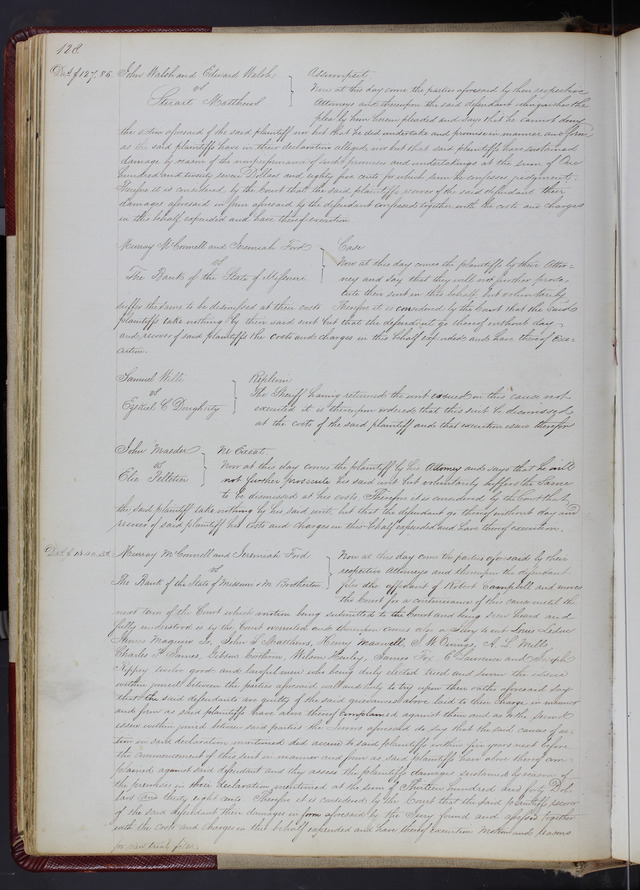 128
Debt $127.85. John Walsh and Edward Walsh Assumpsit
vs Now at this day come the parties aforesaid by their respective
Stuart Matthews Attorneys and thereupon the said defendant relinquishes the
plea by him herein pleaded and says that he cannot deny
the action aforesaid of the said plaintiff nor but that he did undertake and promise in manner and form
as the said plaintiffs have in their declaration alleged, nor but that said plaintiffs have sustained
damage by reason of the nonperformance of such promises and undertakings at the sum of One
hundred and twenty seven Dollars and eighty five cents for which sum he confesses judgment.
Therefore it is considered by the Court that the said plaintiffs recover of the said defendant their
damages aforesaid in form aforesaid by the defendant confessed together with the costs and charges
in this behalf expended and have thereof execution.
Murray McConnell and Jeremiah Ford Case
vs Now at this day comes the plaintiffs by their Attor-
The Bank of the State of Missouri ney and say that they will not further prose-
cute their suit in this behalf but voluntarily
suffer the same to be dismissed at their costs Therefore it is considered by the Court that the said
plaintiffs take nothing by their said suit but that the defendant go thereof without day
and recover of said plaintiffs the costs and charges in this behalf expended and have thereof exe-
cution.
Samuel Willi Replevin
vs The Sheriff having returned the writ issued in this cause not
Ezekiel C Dougherty executed it is thereupon ordered that this suit be dismissed
at the costs of the said plaintiff and that execution issue therefor
John Maeder Ne Exeat.
vs Now at this day comes the plaintiff by his Attorney and says that he will
Elie Pelletier not further prosecute his said suit but voluntarily suffers the same
to be dismissed at his costs. Therefore it is considered by the Court that
the said plaintiff take nothing by his said suit, but that the defendant go thereof without day and
recover of said plaintiff his costs and charges in this behalf expended and have thereof execution.
Murray McConnell and Jeremiah Ford Now at this day come the parties aforesaid by their
vs respective Attorneys and thereupon the defendant
The Bank of the State of Missouri & M. Brotherton files the affidavit of Robert Campbell and moves
the Court for a continuance of this cause until the
next term of the Court which motion being submitted to the Court and being seen heard and
fully understood is by the Court overruled and thereupon comes also a Jury to wit Louis Leduc
James Maguire Jr, John L Matthews, Henry Maxwell, J M Ownings, A. L. Mills
Charles F. James, Gibson Corthron, Wilson Henley, James Fox, C Laurence and Joseph
Kippey twelve good and lawful men who being duly elected tried and sworn the issues
within joined between the parties aforesaid well and truly to try upon their oaths aforesaid say
that the said defendants are guilty of the said grievances above laid to their charge in manner
and form as said plaintiffs have above thereof complained against them and as to the second
issue within joined between said parties the Jurors aforesaid do say that the said causes of ac-
tion in said declaration mentioned did accrue to said plaintiffs within five years next before
the commencement of this suit in manner and form as said plaintiffs have above thereof com-
plained against said defendant and they assess the plaintiffs damages sustained by reason of
the premises in their declaration mentioned at the sum of Thirteen hundred and forty Dol-
lars and thirty eight cents Therefore it is considered by the Court that the said plaintiffs recover
of the said defendant their damages in form aforesaid by the Jury found and assessed together
with the costs and charges in this behalf expended and have thereof execution Motion and reasons
for new trial filed.